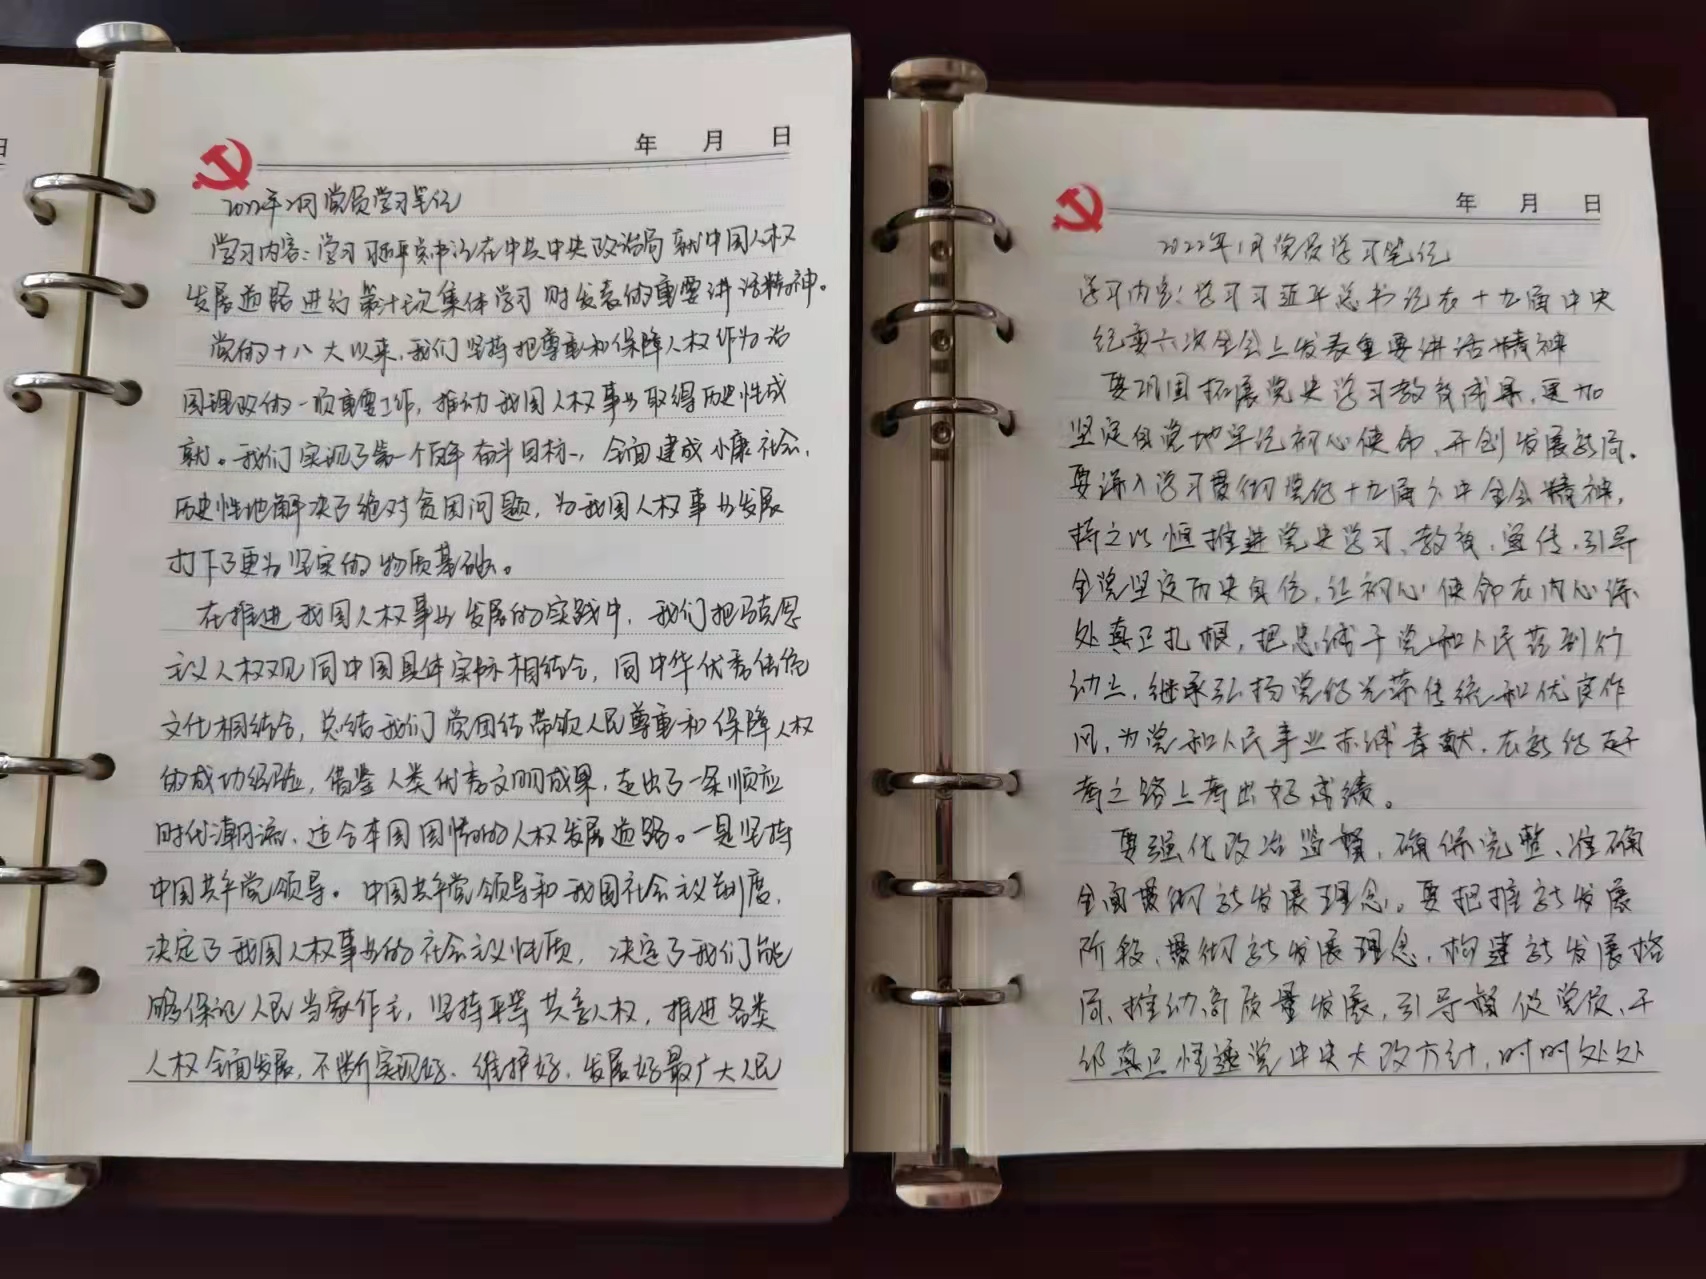 年 月 日
2022年2月党员学习笔记
学习内容：学习习近平总书记在中共中央政治局就中国人权
发展道路进行第三十七次集体学习时发表的重要讲话精神。
党的十八大以来，我们坚持把尊重和保障人权作为治
国理政的一项重要工作，推动我国人权事业取得历史性成
就。我们实现了第一个百年奋斗目标，全面建成小康社会，
历史性地解决了绝对贫困问题，为我国人权事业发展
打下了更为坚实的物质基础。
在推进我国人权事业发展的实践中，我们把马克思
主义人权观同中国具体实际相结合，同中华优秀传统
文化相结合，总结我们党团结带领人民尊重和保障人权
的成功经验，借鉴人类优秀文明成果，走出了一条顺应
时代潮流、适合本国国情的人权发展道路。一是坚持
中国共产党领导。中国共产党领导和我国社会主义制度，
决定了我国人权事业的社会主义性质，决定了我们能
够保证人民当家作主，坚持平等共享人权，推进各类
人权全面发展，不断实现好、维护好、发展好最广大人民
年 月 日
2022年1月党员学习笔记
学习内容：学习习近平总书记在十九届中央
纪委六次全会上发表重要讲话精神
要巩固拓展党史学习教育成果，更加
坚定自觉地牢记初心使命、开创发展新局。
要深入学习贯彻党的十九届六中全会精神，
持之以恒推进党史学习、教育、宣传，引导
全党坚定历史自信，让初心使命在内心深
处真正扎根，把忠诚于党和人民落到行
动上，继承弘扬党的光荣传统和优良作
风，为党和人民事业赤诚奉献，在新的赶
考之路上考出好成绩。
要强化政治监督，确保完整、准确
全面贯彻新发展理念。要把握新发展
阶段、贯彻新发展理念、构建新发展格
局、推动高质量发展，引导督促党员、干
部真正悟透党中央大政方针，时时处处